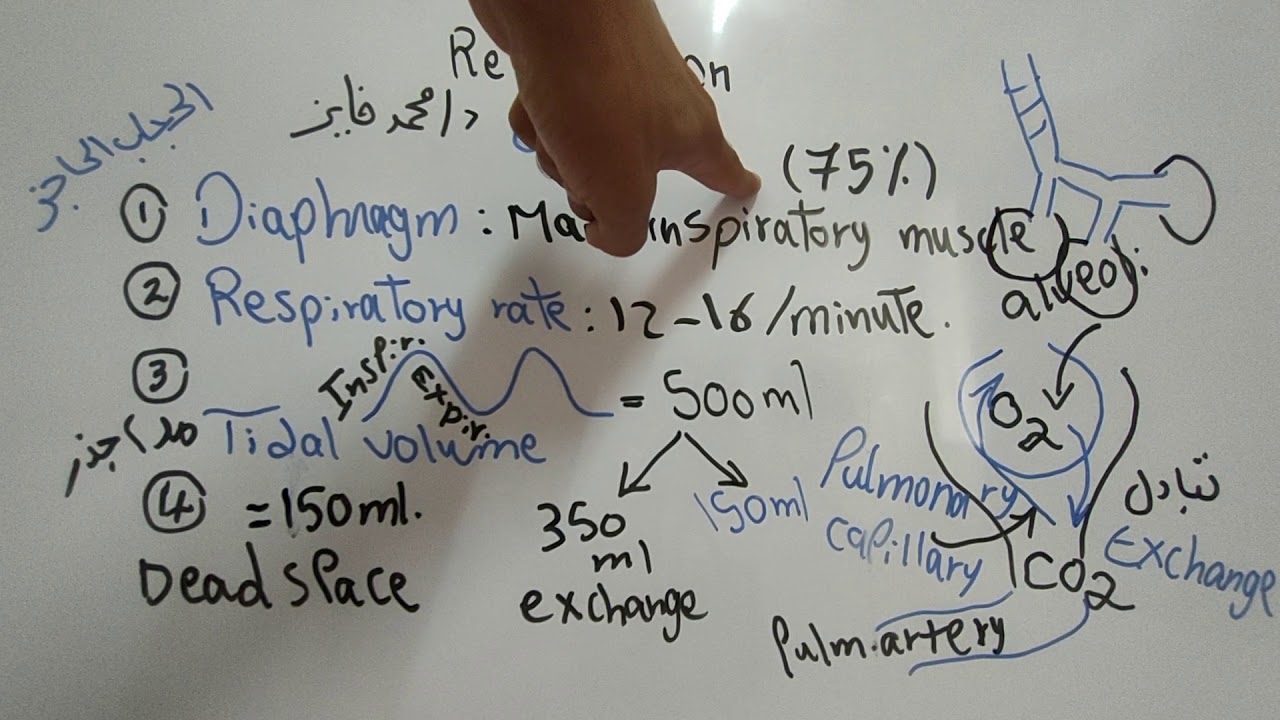 د/محمد فايز
الحجاب الحاجز
(75%)
① Diaphragm : Ma inspiratory muscle
② Respiratory rate : 12-16/minute.
③
Inspir. Expir.
Tidal volume = 500ml
350 ml exchange
150ml
④ = 150ml.
Dead space
alveoli
O2
Pulmonary capillary
تبادل
Exchange
CO2
Pulm. artery